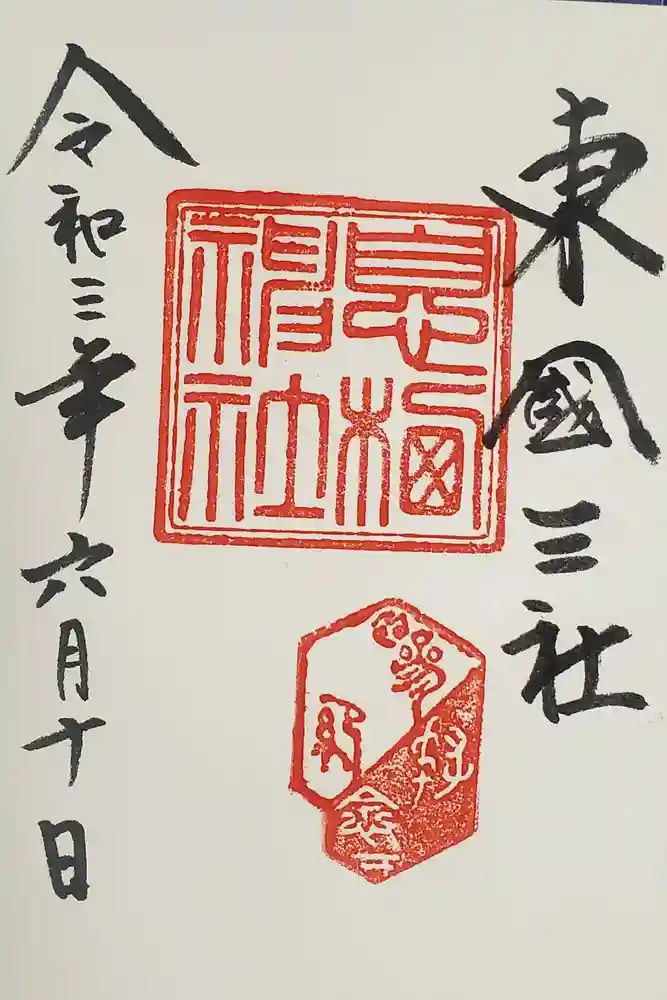 東國三社
息栖神社
令和三年六月十日